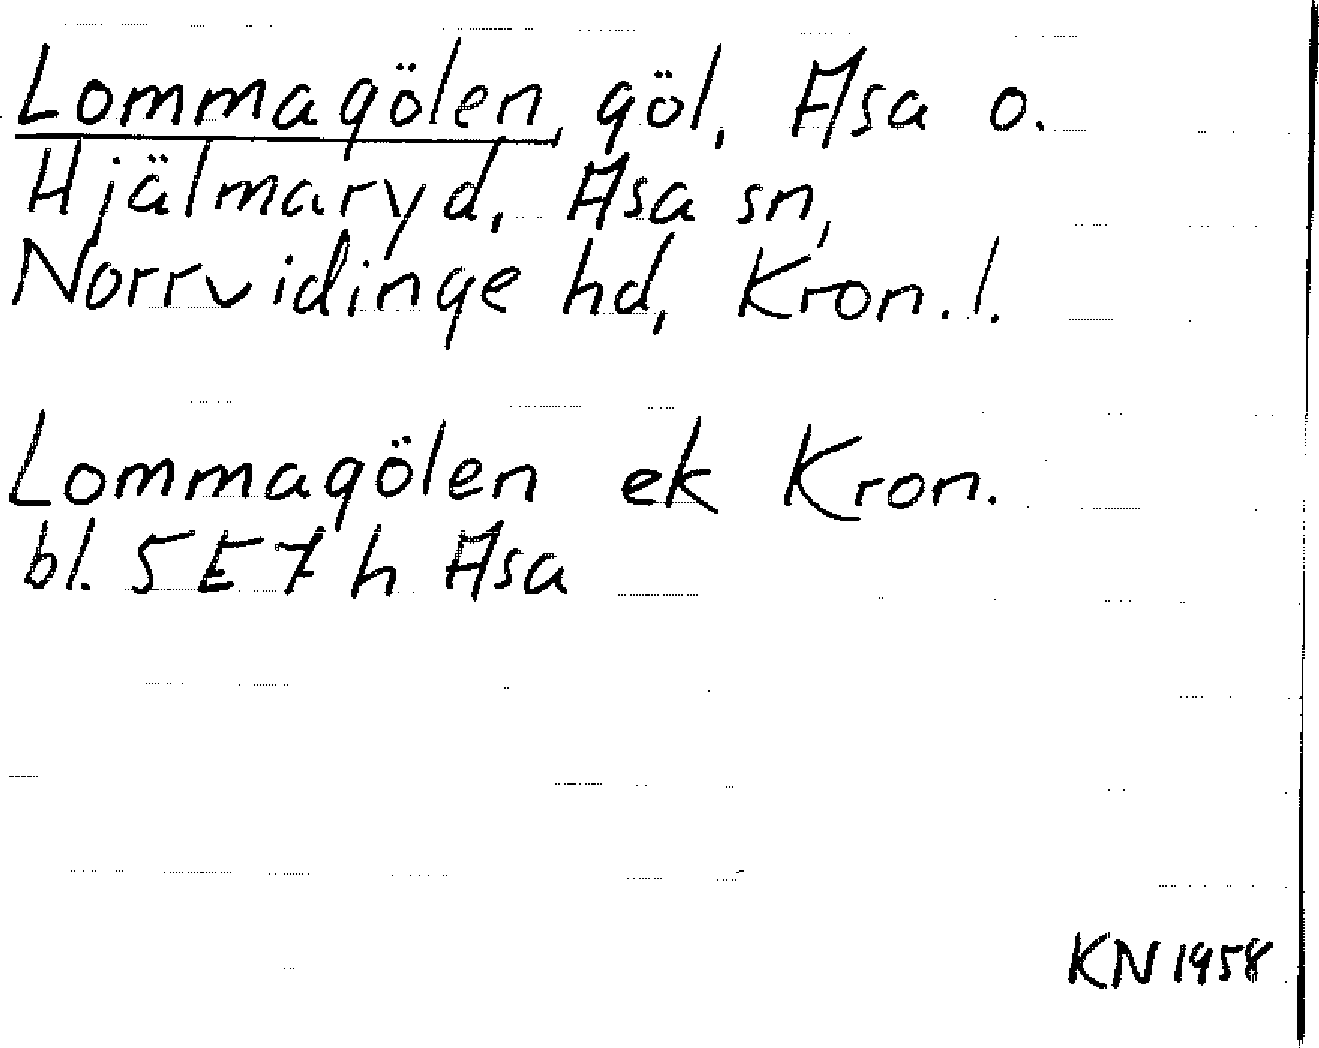 Lommagölen, göl, Asa o.
Hjälmaryd, Asa sn,
Norrvidinge hd, Kron. l.
Lommagölen ek Kron.
bl. 5 E 7 h Asa
KN 1958